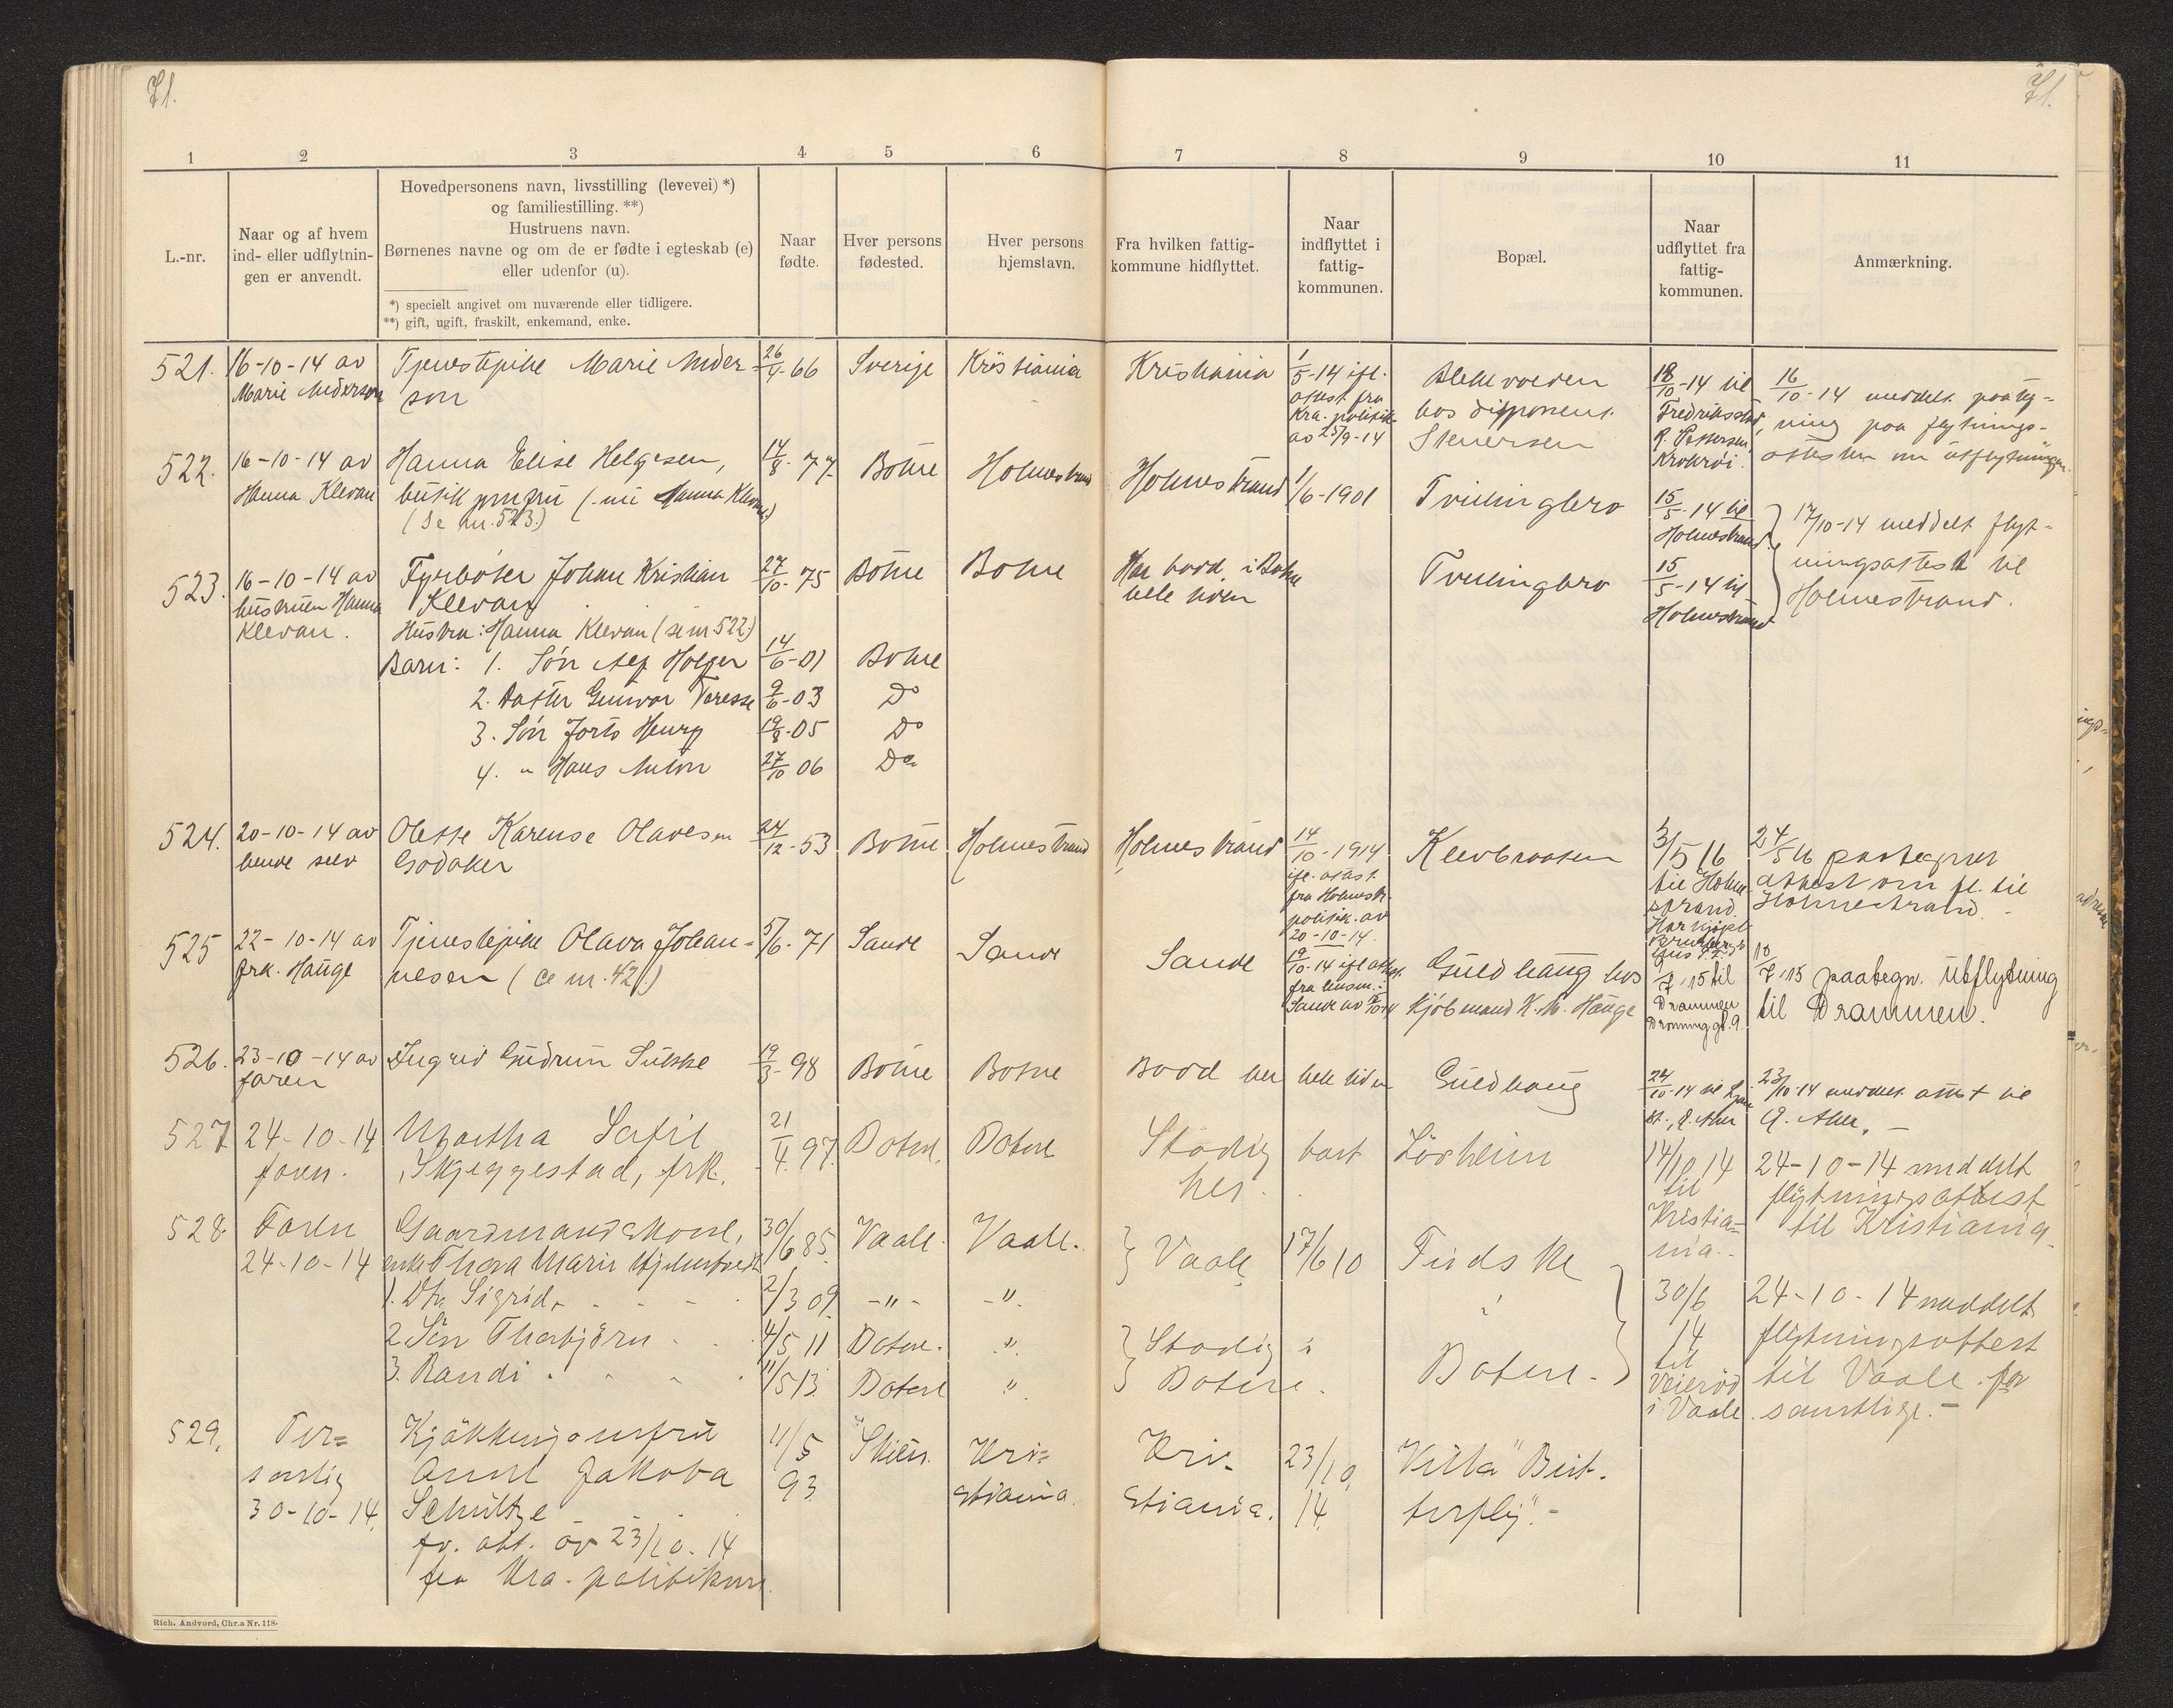 71.
71.
1 2 3 4 5 6 7 8 9 10 11
L.-nr.
Naar og af hvem
ind- eller udflytnin-
gen er anvendt.
Hovedpersonens navn, livsstilling (levevei) *)
og familiestilling. **)
Hustruens navn.
Børnenes navne og om de er fødte i egteskab (e)
eller udenfor (u).
*) specielt angivet om nuværende eller tidligere.
**) gift, ugift, fraskilt, enkemand, enke.
Naar
fødte.
Hver persons
fødested.
Hver persons
hjemstavn.
Fra hvilken fattig-
kommune hidflyttet.
Naar
indflyttet i
fattig-
kommunen.
Bopæl.
Naar
udflyttet fra
fattig-
kommunen.
Anmærkning.
521.
16-10-14 av
Marie Anderson
Tjenestepike Marie Ander-
son
26/4-66
Sverige
Kristiania
Kristiania
1/5-14 ifl.
attest fra
Kra. politik.
av 25/9-14
Blekevolden
hos disponent
Stenersen
18/10-14 til
Fredriksstad,
R. Pettersen
Krokrøi.
16/10-14 meddelt paateg-
ning paa flytnings-
attesten om utflytningen.
522.
16-10-14 av
Hanna Klevan
Hanna Elise Helgesen,
butikjomfru (nu Hanna Klevan)
(Se nr. 523.)
14/8-77
Botne
Holmestrand
Holmestrand
1/6-1901
Tvillingbro
15/5-14 til
Holmestrand
17/10-14 meddelt flyt-
ningsattest til
Holmestrand.
523.
16-10-14 av
hustruen Hanna
Klevan.
Fyrbøter Johan Kristian
Klevan
Hustru: Hanna Klevan (se nr 522)
Barn: 1. Søn Alf Holger
2. Datter Gunvor Terese
3. Søn Henry
4. " Hans Anton
27/10-75
14/6-01
9/6-03
19/8-05
27/10 06
Botne
Botne
Do
Do
Do
Botne
Har bodd i Botne
hele tiden
Tvillingbro
15/5-14 til
Holmestrand
524.
20-10-14 av
hende selv
Olette Karense Olavesen
Godaker
24/12-53
Botne
Holmestrand
Holmestrand
14/10-1914
ifl. attest
fra Holmestr.
politik. av
20-10-14.
Klevbraaten
3/5 16
til Holme-
strand.
24/5 16 paategnet
attest om fl. til
Holmestrand.
525
22-10-14 av
frk. Hauge
Tjenestepike Olava Johan-
nesen (se nr. 421)
5/6-71
Sande
Sande
Sande
19/10-14 ifl attest
fra lensm. i
Sande
Guldhaug hos
kjøbmand K. M. Hauge
7 '15 til
Drammen
10/7 '15 paategn. utflytning
til Drammen.
526.
23-10-14 av
faren
Ingrid Gudrun
19/3-98
Botne
Botne
Bodd her hele tiden
Guldhaug
24/10-14 til
23/10-14 meddelt attest til
Ø. Aker.
527
24-10-14
faren.
Martha Sofie
Skjeggestad, frk.
21/4 97
Botne.
Botne
Stadig boet
her.
Lørheim
14/10 14
til
Kristia=
nia.
24-10-14 meddelt
flytningsattest
til Kristiania.
528
Faren
24-10-14
Gaardmandskone,
enke Thora Marie
1. Dtr. Sigrid
2. Søn Thorbjørn
3. Randi
30/6 85
2/3 09
4/5 11
11/5 13
Vaale.
-"-
Botne.
Botne
Vaale.
-"-
"
"
Vaale
Stadig i
Botne.
17/6 10
i
Botne.
30/6
14
til
Veierød
i Vaale.
24-10-14 meddelt
flytningsattest
til Vaale for
samtlige.-
529.
Per=
sonlig
30-10-14.
Kjøkkenjomfru
Anne Jakoba
Schültze
fv. att. av 23/10-14
fra Kra. politikm.
11/5
93
Skien.
Kri=
stiania.
Kri=
stiania.
23/10
14
Villa "But-
terfly".-
Rich. Andvord, Chr.a Nr. 118.